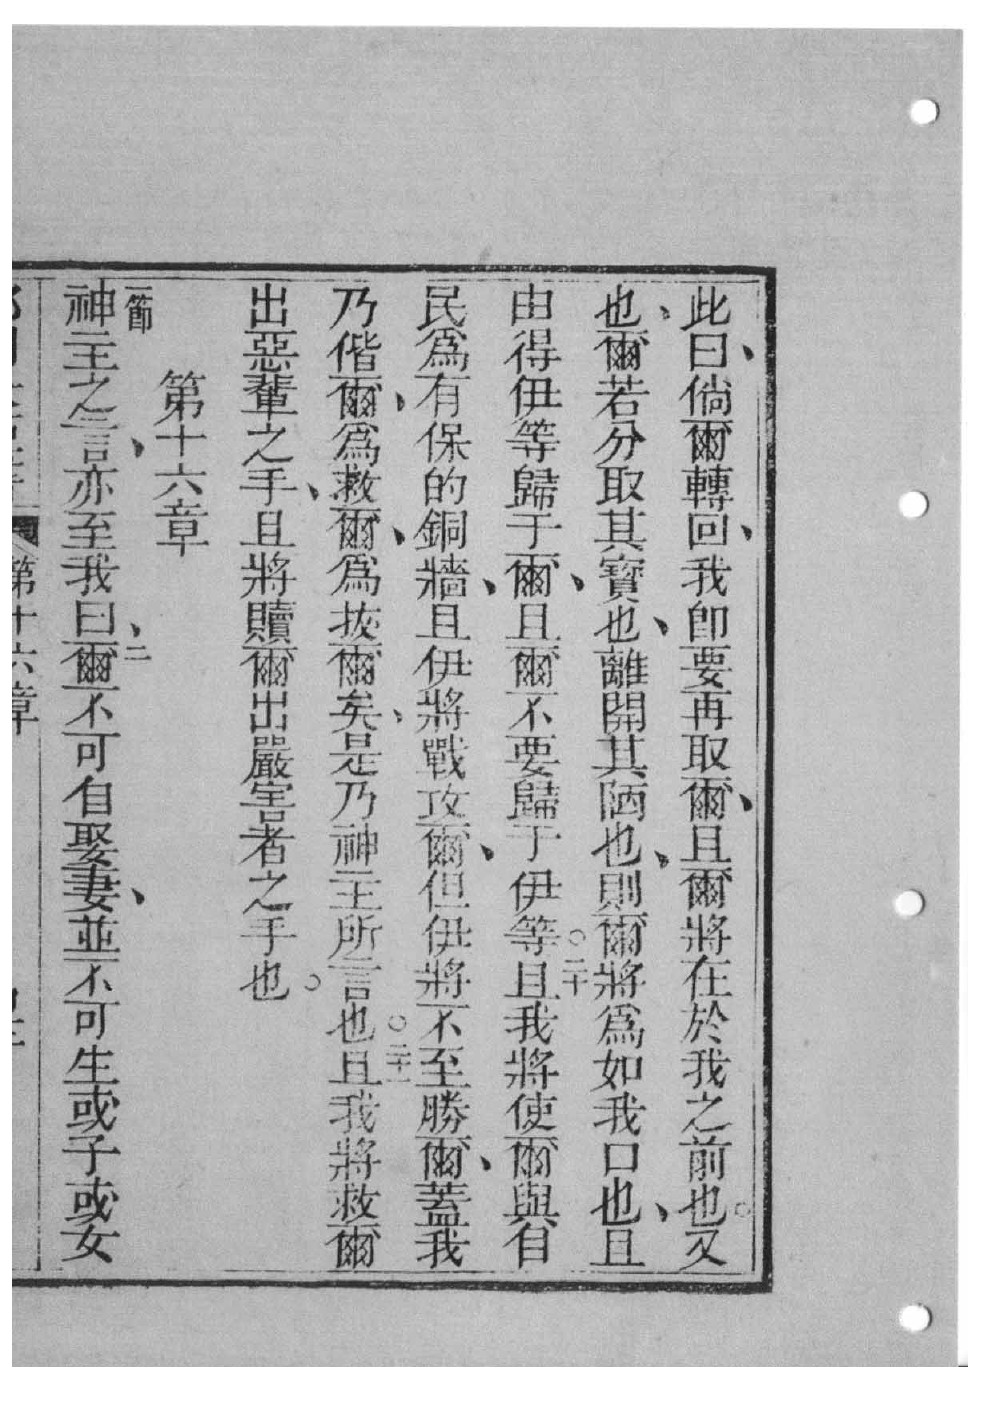 此曰、倘爾轉回、我卽要再取爾、且爾將在於我之前也。又
也、爾若分取其寶也、離開其陋也、則爾將爲如我口也、且
由得伊等歸于爾、且爾不要歸于伊等。二十且我將使爾與自
民爲有保的銅牆、且伊將戰攻爾、但伊將不至勝爾、蓋我
乃偕爾、爲救爾、爲拔爾矣、是乃神主所言也。二十一且我將救爾
出惡輩之手、且將贖爾出嚴害者之手也。
第十六章
一節神主之言、亦至我曰、二爾不可自娶妻、並不可生或子或女
第十六章